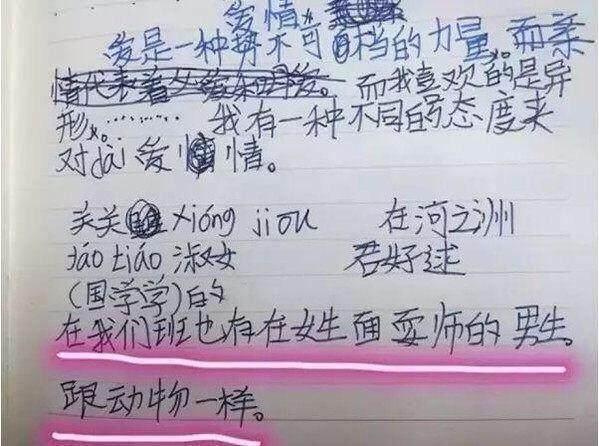 爱情
爱是一种势不可档的力量。而亲
情代表着父爱和母爱。而我喜欢的是异
形。……… 我有一种不同的态度来
对dài爱情。
关关 xióng jiou 在河之洲
yáo tiáo 淑女 君好逑
(国学学)的
在我们班也存在女生面耍师的男生。
跟动物一样。